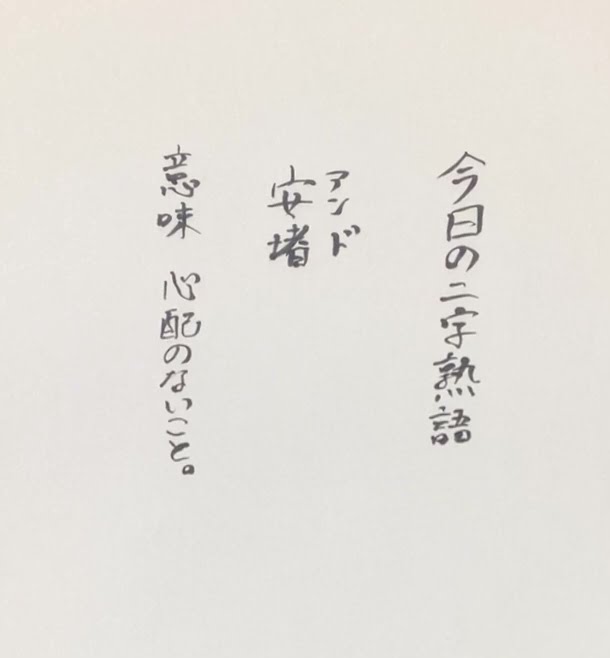 今日の二字熟語
アンド
安堵
意味 心配のないこと。